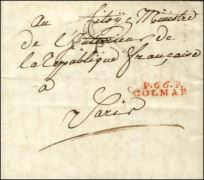 au Citoyen Ministre
de l'Intérieur de
la République française
à
Paris
P.66.P.
COLMAR